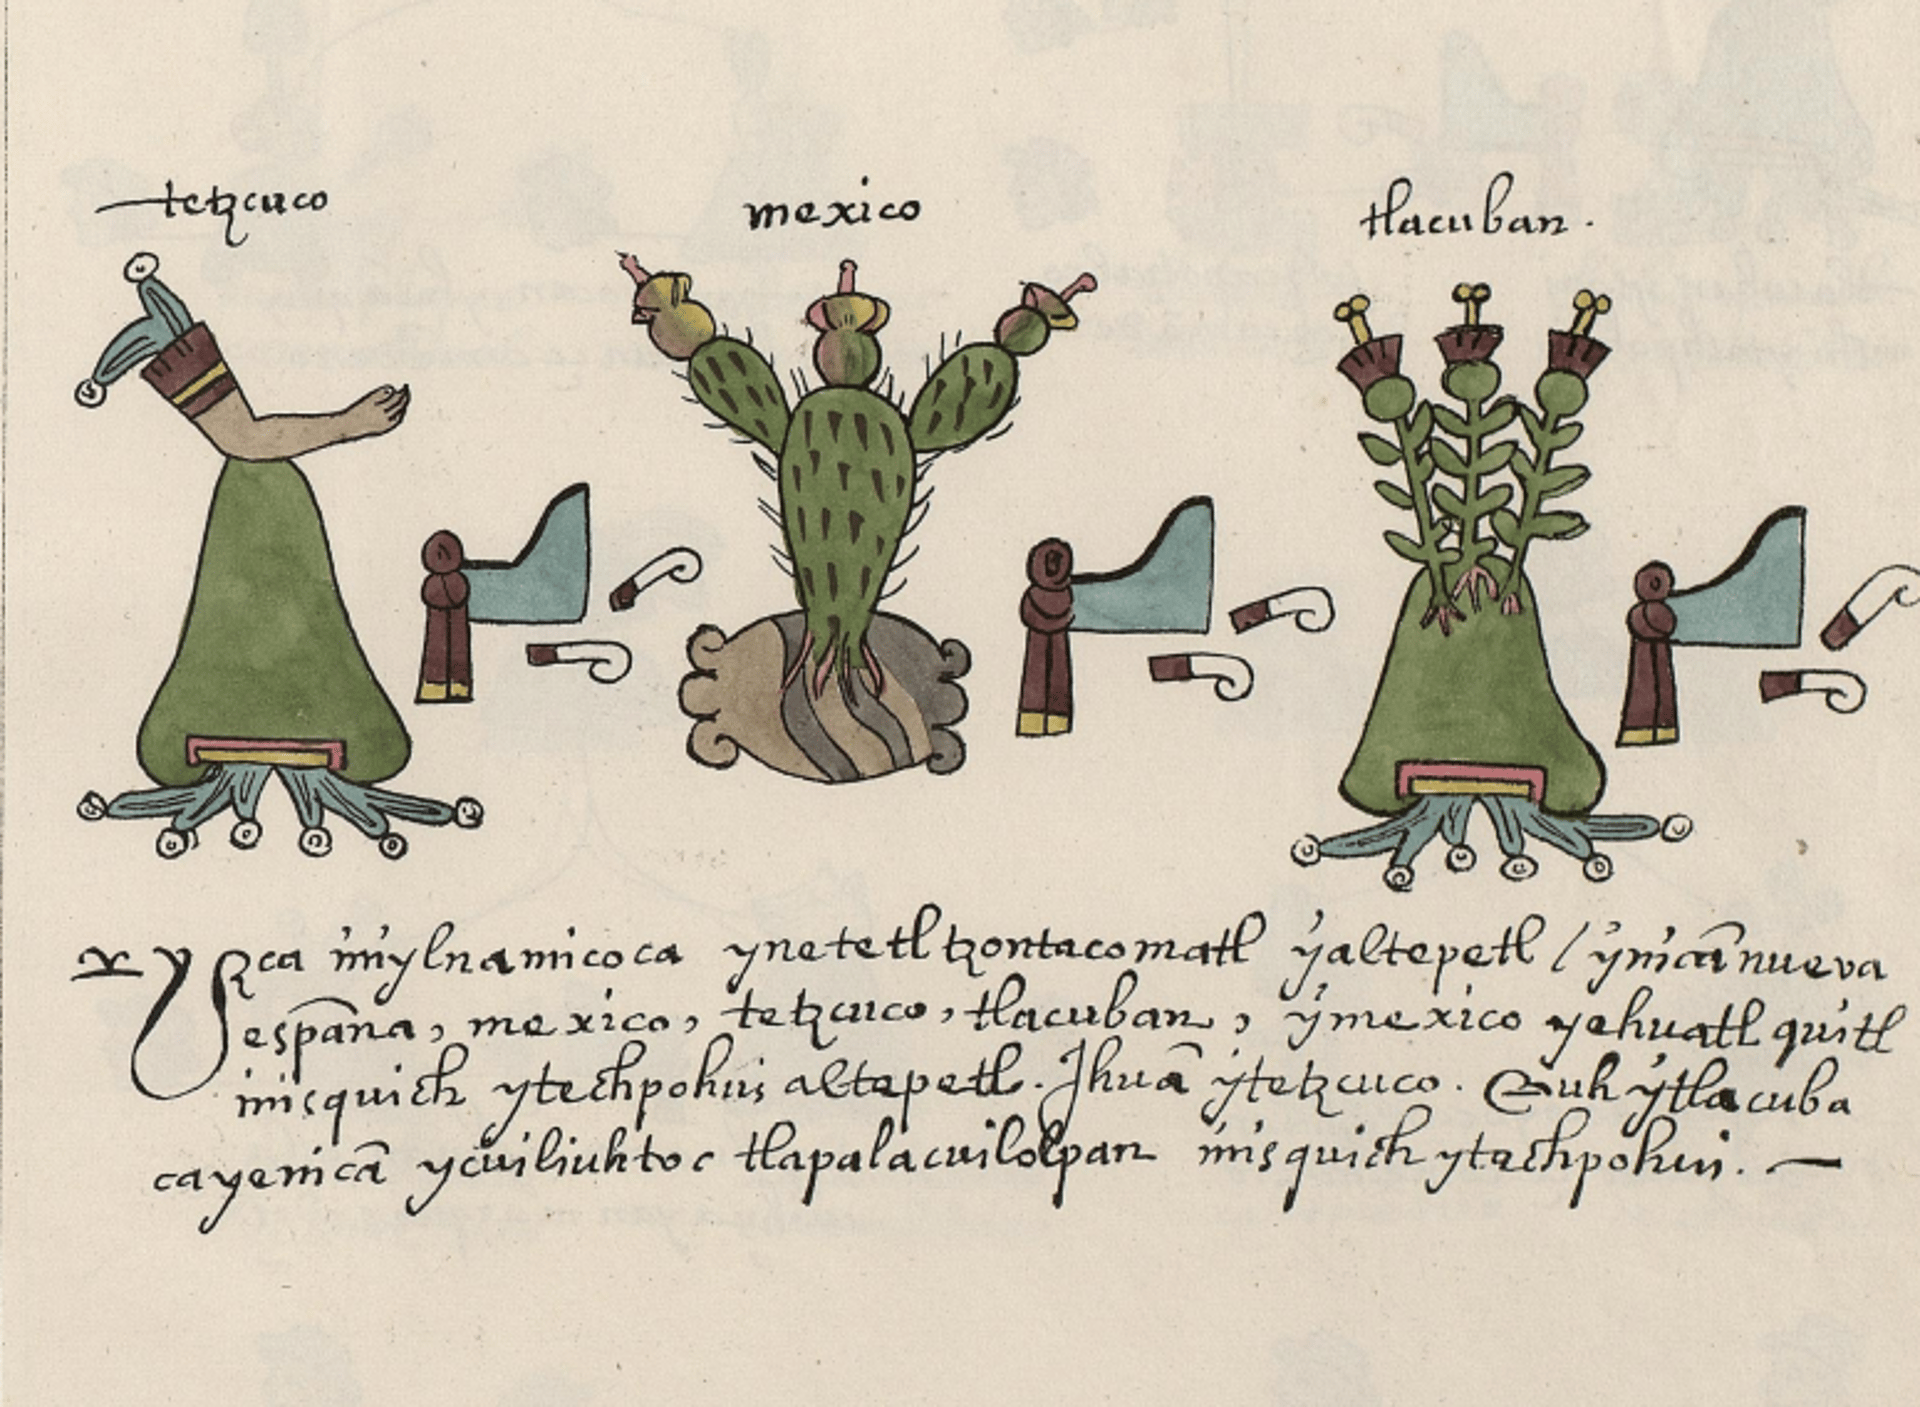 tetzcuco
mexico
tlacuban.
Yzca ininylnamicoca ynetetl tzontacomatl ÿaltepetl / ÿnicā nueva
españa, mexico, tetzcuco, tlacuban, ÿmexico yehuatl quitl
inisquich ytechpohui altepetl. Jhuā ÿtetzcuco. Auh ÿtlacuba
cayenicā ycuiliuhtoc tlapalacuilolpan inisquich ytechpohui.